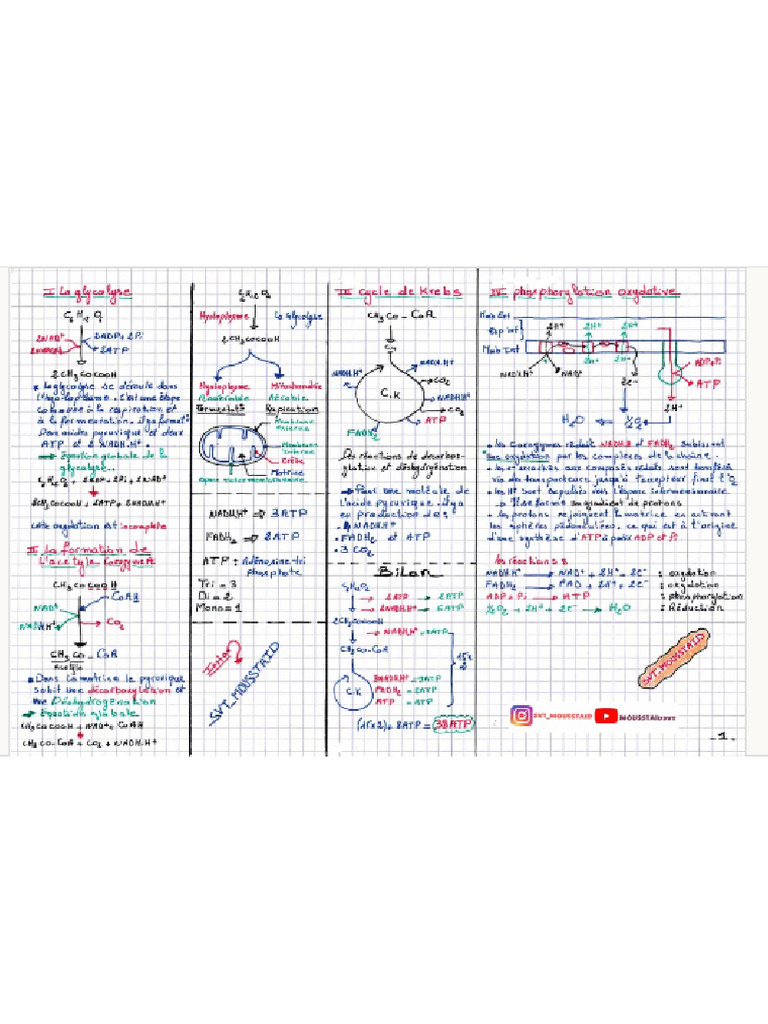 I La glycolyse
C6H12O6
2NAD+
2NADH,H+
2ADP+2Pi
2ATP
2CH3COCOOH
La glycolyse se déroule dans
l'hyaloplasme. C'est une étape
commune à la respiration et
à la fermentation. Il ya formati
Des acides pyruvique et deux
ATP et 2 NADH.H+.
→ Equation globale de la
glycolyse.
C6H12O6 + 2ADP + 2Pi + 2NAD+
2CH3COCOOH + 2ATP + 2NADH.H+
cette oxydation est incomplète
II La formation de
L'acétyle Coenzyme A
CH3COCOOH
CoAH
NAD+
NADH.H+
CO2
CH3 CO - CoA
Acétyle
Dans la matrice le pyruvique
subit une décarboxylation et
une Déshydrogénation
→ Equation globale
CH3COCOOH + NAD+ + CoAH
CH3 CO - CoA + CO2 + NADH.H+
C6H12O6
Hyaloplasme
La Glycolyse
2CH3COCOOH
Hyaloplasme
Mitochondrie
Anaérobie
Aérobie
Fermentat°
Respiration
Membrane
externe
Membrane
interne
Crête
Matrice
espace inter membranaire
NADH.H+ ⇒ 3ATP
FADH2 ⇒ 2ATP
ATP : Adénosine-tri
phosphate
Tri = 3
Di = 2
Mono = 1
SVT_MOUSSTAID
III Cycle de Krebs
CH3CO - CoA
C2
NADH.H+
NADH.H+
CO2
C.K
NADH.H+
CO2
ATP
FADH2
Des réactions de décarbox-
ylation et déshydrogénation
→ Pour une molécule de
l'acide pyruvique il ya
eu production de :
• 4 NADH.H+
• FADH2 et ATP
• 3 CO2
Bilan
C6H12O6
→ 2ATP → 2ATP
→ 2NADH.H+ → 6ATP
2CH3COCOOH
→ NADH.H+ → 3ATP
CH3 CO-CoA
C.K
3NADH.H+ → 9ATP
FADH2 → 2ATP
ATP → ATP
(15x2) + 8ATP = 38ATP
IV phosphorylation oxydative
Mb Ext
Esp int
Mb Int
2H+
2H+
2H+
2H+
NADH.H+
NAD+
2e-
ADP+Pi
ATP
H2O
1/2 O2
2H+
• les Coenzymes réduit NADH.H et FADH2 subissent
une oxydation par les complexes de la chaîne.
via des transporteurs jusqu'à l'accepteur final l'O2
• les H+ sont expulsés vers l'espace intermembranaire
→ Il se forme un gradient de protons
• les protons rejoignent la matrice en activant
les sphères pédonculées, ce qui est à l'origine
d'une synthèse d'ATP à partir ADP et Pi.
les réactions :
NADH.H+ → NAD+ + 2H+ + 2e- : oxydation
FADH2 → FAD + 2H+ + 2e- : oxydation
ADP + Pi → ATP : phosphorylation
1/2 O2 + 2H+ + 2e- → H2O : Réduction
SVT_MOUSSTAID
SVT_MOUSSTAID
MOUSSTAID SVT
-1-